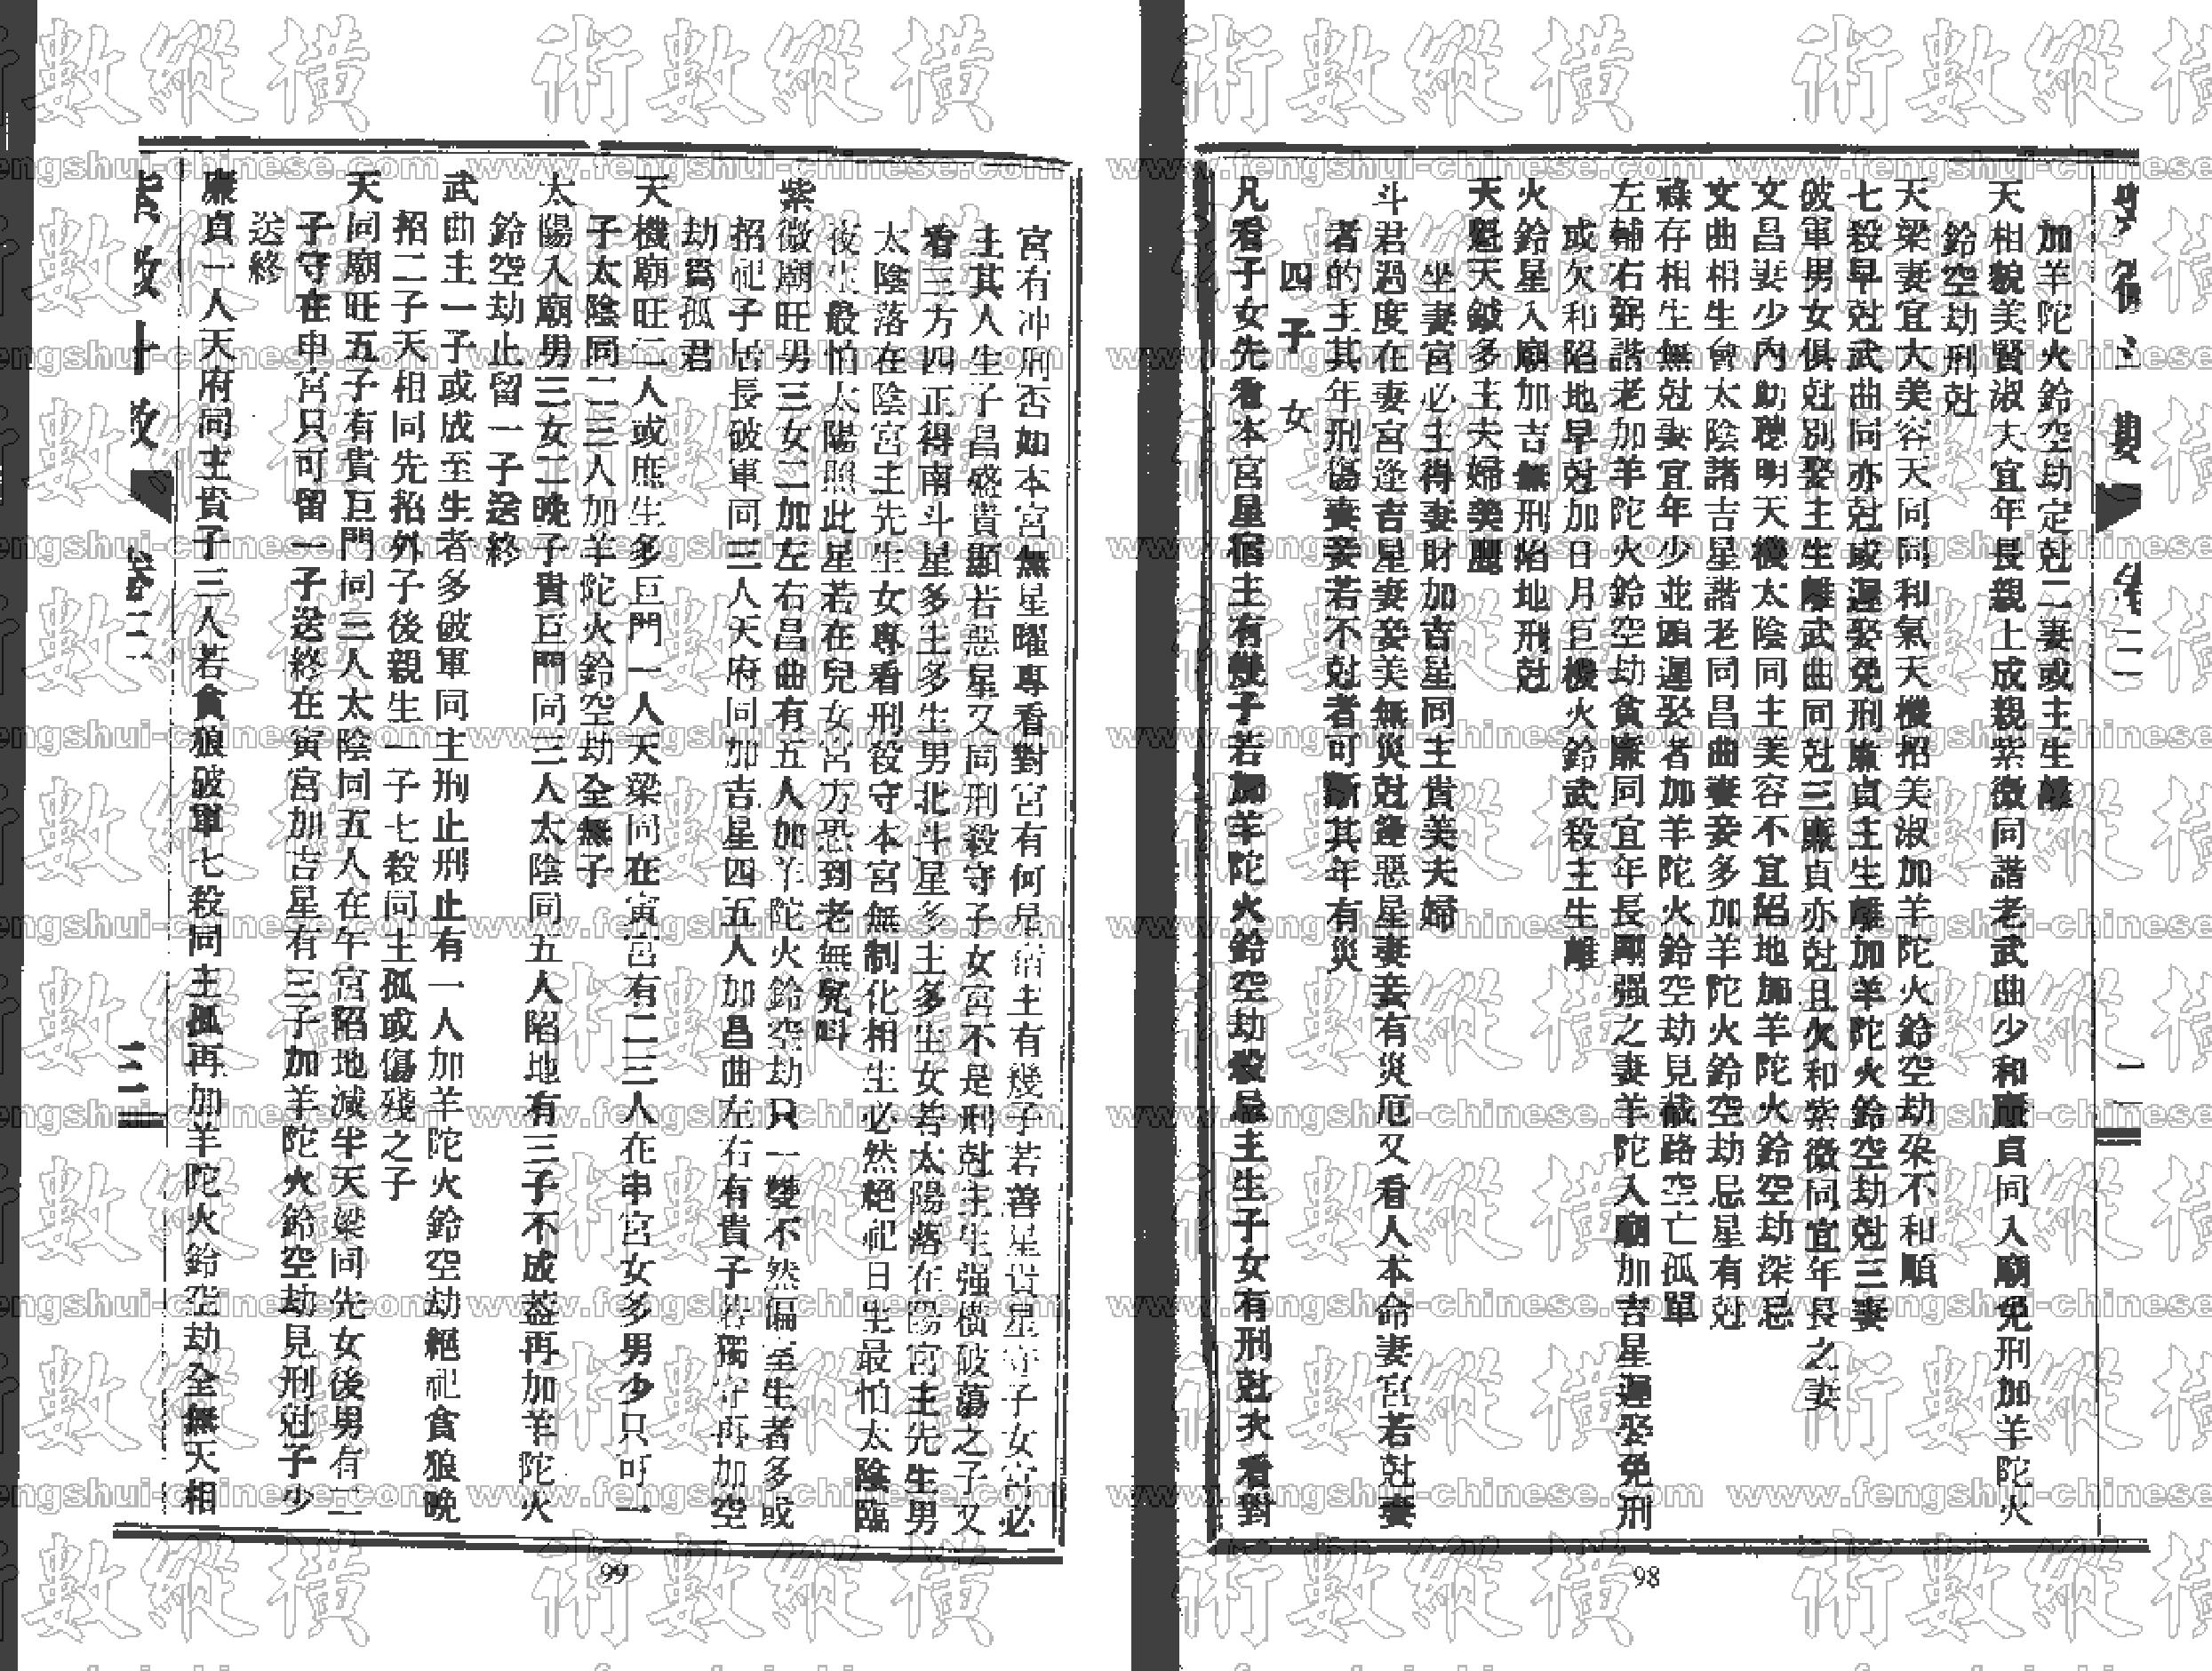 加羊陀火鈴空劫定尅二妻或主生離
天相貌美賢淑夫宜年長親上成親紫微同諧老武曲少和廉貞同入廟免刑加羊陀火
鈴空劫刑尅
天梁妻宜大美容天同同和氣天機招美淑加羊陀火鈴空劫不和順
七殺早尅武曲同亦尅或遲娶免刑廉貞主生離加羊陀火鈴空劫尅三妻
破軍男女俱尅別娶主生離武曲同尅三廉貞亦尅且欠和紫微同宜年長之妻
文昌妻少內助聰明天機太陰同主美容不宜陷地加羊陀火鈴空劫深忌
文曲相生會太陰諸吉星諧老同昌曲妻妾多加羊陀火鈴空劫忌星有尅
祿存相生無尅妻宜年少並頭遲娶者加羊陀火鈴空劫見截路空亡孤單
左輔右弼諧老加羊陀火鈴空劫貪廉同宜年長剛强之妻羊陀入廟加吉星遲娶免刑
或欠和陷地早尅加日月巨機火鈴武殺主生離
火鈴星入廟加吉無刑陷地刑尅
天魁天鉞多主夫婦美麗
坐妻宮必主得妻財加吉星同主貴美夫婦
斗君過度在妻宮逢吉星妻妾美無災尅逢惡星妻妾有災厄又看人本命妻宮若尅妻
者的主其年刑傷妻妾若不尅者可斷其年有災
四 子 女
凡看子女先看本宮星宿主有幾子若加羊陀火鈴空劫殺忌主生子女有刑尅次看對
98
宮有冲刑否如本宮無星曜專看對宮有何星宿主有幾子若善星貴星守子女宮必
主其人生子昌盛貴顯若惡星又同刑殺守子女宮不是刑尅主生强橫破蕩之子又
看三方四正得南斗星多主多生男北斗星多主多生女若太陽落在陽宮主先生男
太陰落在陰宮主先生女專看刑殺守本宮無制化相生必然絕祀日生最怕太陰臨
夜生最怕太陽照此星若在兒女宮方恐到老無兒叫
紫微廟旺男三女二加左右昌曲有五人加羊陀火鈴空劫只一雙不然偏室生者多或
招祀子居長破軍同三人天府同加吉星四五人加昌曲左右有貴子若獨守再加空
劫爲孤君
天機廟旺二人或庶生多巨門一人天梁同在寅宮有二三人在申宮女多男少只可一
子太陰同二三人加羊陀火鈴空劫全無子
太陽入廟男三女二晚子貴巨門同三人太陰同五人陷地有三子不成莶再加羊陀火
鈴空劫止留一子送終
武曲主一子或成至生者多破軍同主刑止刑止有一人加羊陀火鈴空劫絕祀貪狼晚
招二子天相同先招外子後親生一子七殺同主孤或傷殘之子
天同廟旺五子有貴巨門同三人太陰同五人在午宮陷地減半天梁同先女後男有二
子守在申宮只可留一子送終在寅宮加吉星有三子加羊陀火鈴空劫見刑尅子少
送終
廉貞一人天府同主貴子三人若貪狼破軍七殺同主孤再加羊陀火鈴空劫全無天相
卷三
三
99
術數縱橫
www.fengshui-chinese.com